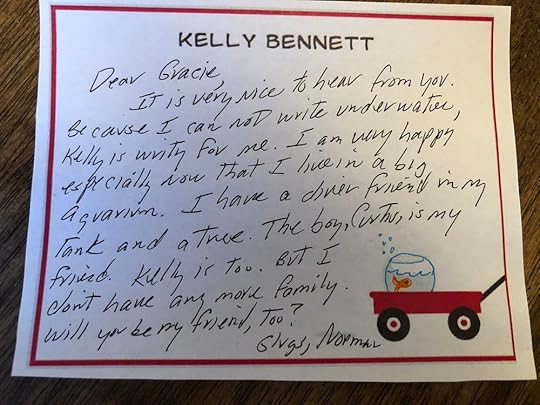 KELLY BENNETT
Dear Gracie,
It is very nice to hear from you.
Because I can not write underwater,
Kelly is writy for me. I am very happy
especially now that I live in a big
Aquarium. I have a diver friend in my
Tank and a tree. The boy, Curtis, is my
friend. Kelly is too. But I
don't have any more family.
Will you be my friend, Too?
Glugs, Norman